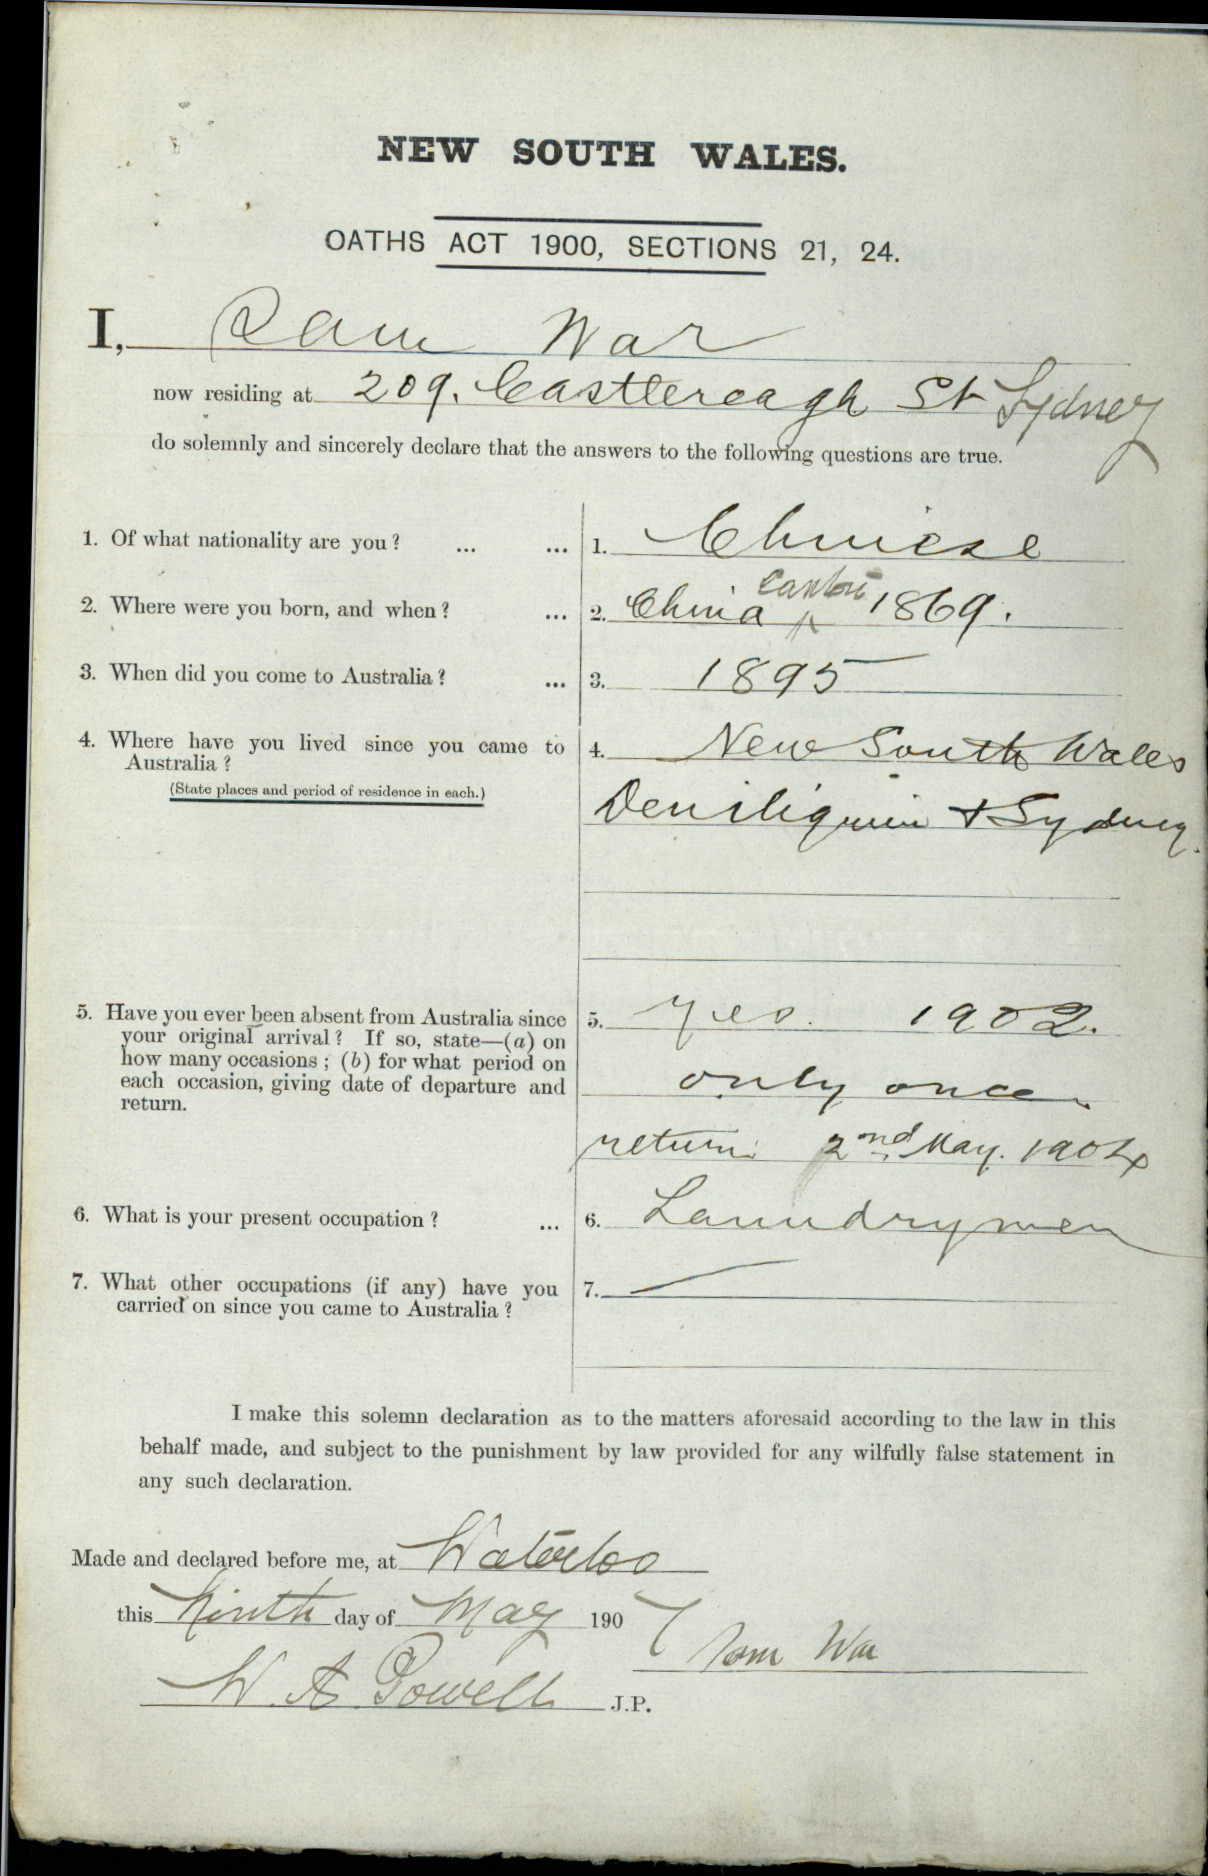 NEW SOUTH WALES.
OATHS ACT 1900, SECTIONS 21, 24.
I, Sam War
now residing at 209. Castlereagh St Sydney
do solemnly and sincerely declare that the answers to the following questions are true.
1. Of what nationality are you? ... ... 1. Chinese
Canton
2. Where were you born, and when? ... 2. China ^ 1869.
3. When did you come to Australia? ... 3. 1895
4. Where have you lived since you came to 4. New South Wales
Australia?
(State places and period of residence in each.)
Deniliquin + Sydney.
5. Have you ever been absent from Australia since 5. Yes. 1902.
your original arrival? If so, state—(a) on
how many occasions; (b) for what period on
each occasion, giving date of departure and only once.
return.
return 2nd May. 1904
6. What is your present occupation? ... 6. Laundrymen
7. What other occupations (if any) have you 7. —
carried on since you came to Australia?
I make this solemn declaration as to the matters aforesaid according to the law in this
behalf made, and subject to the punishment by law provided for any wilfully false statement in
any such declaration.
Made and declared before me, at Waterloo
this Ninth day of May 1907
Sam War
W. A. Powell J.P.